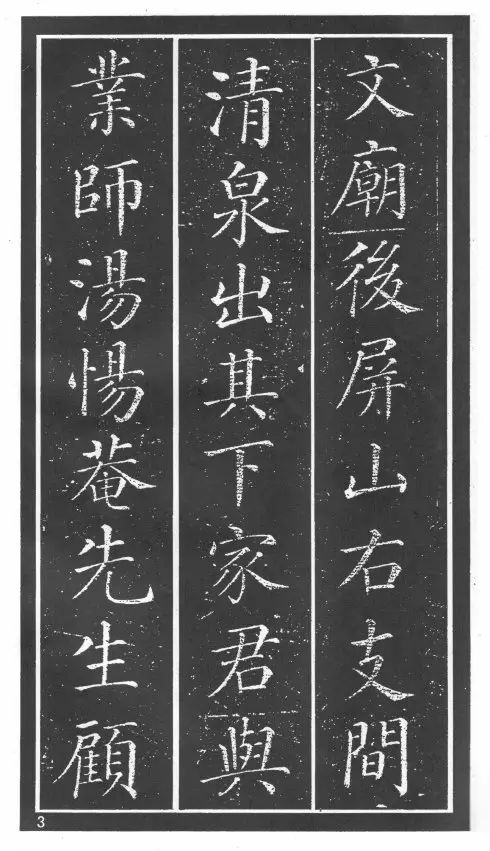 文廟後屏山右支間
清泉出其下家君與
業師湯惕菴先生顧
3